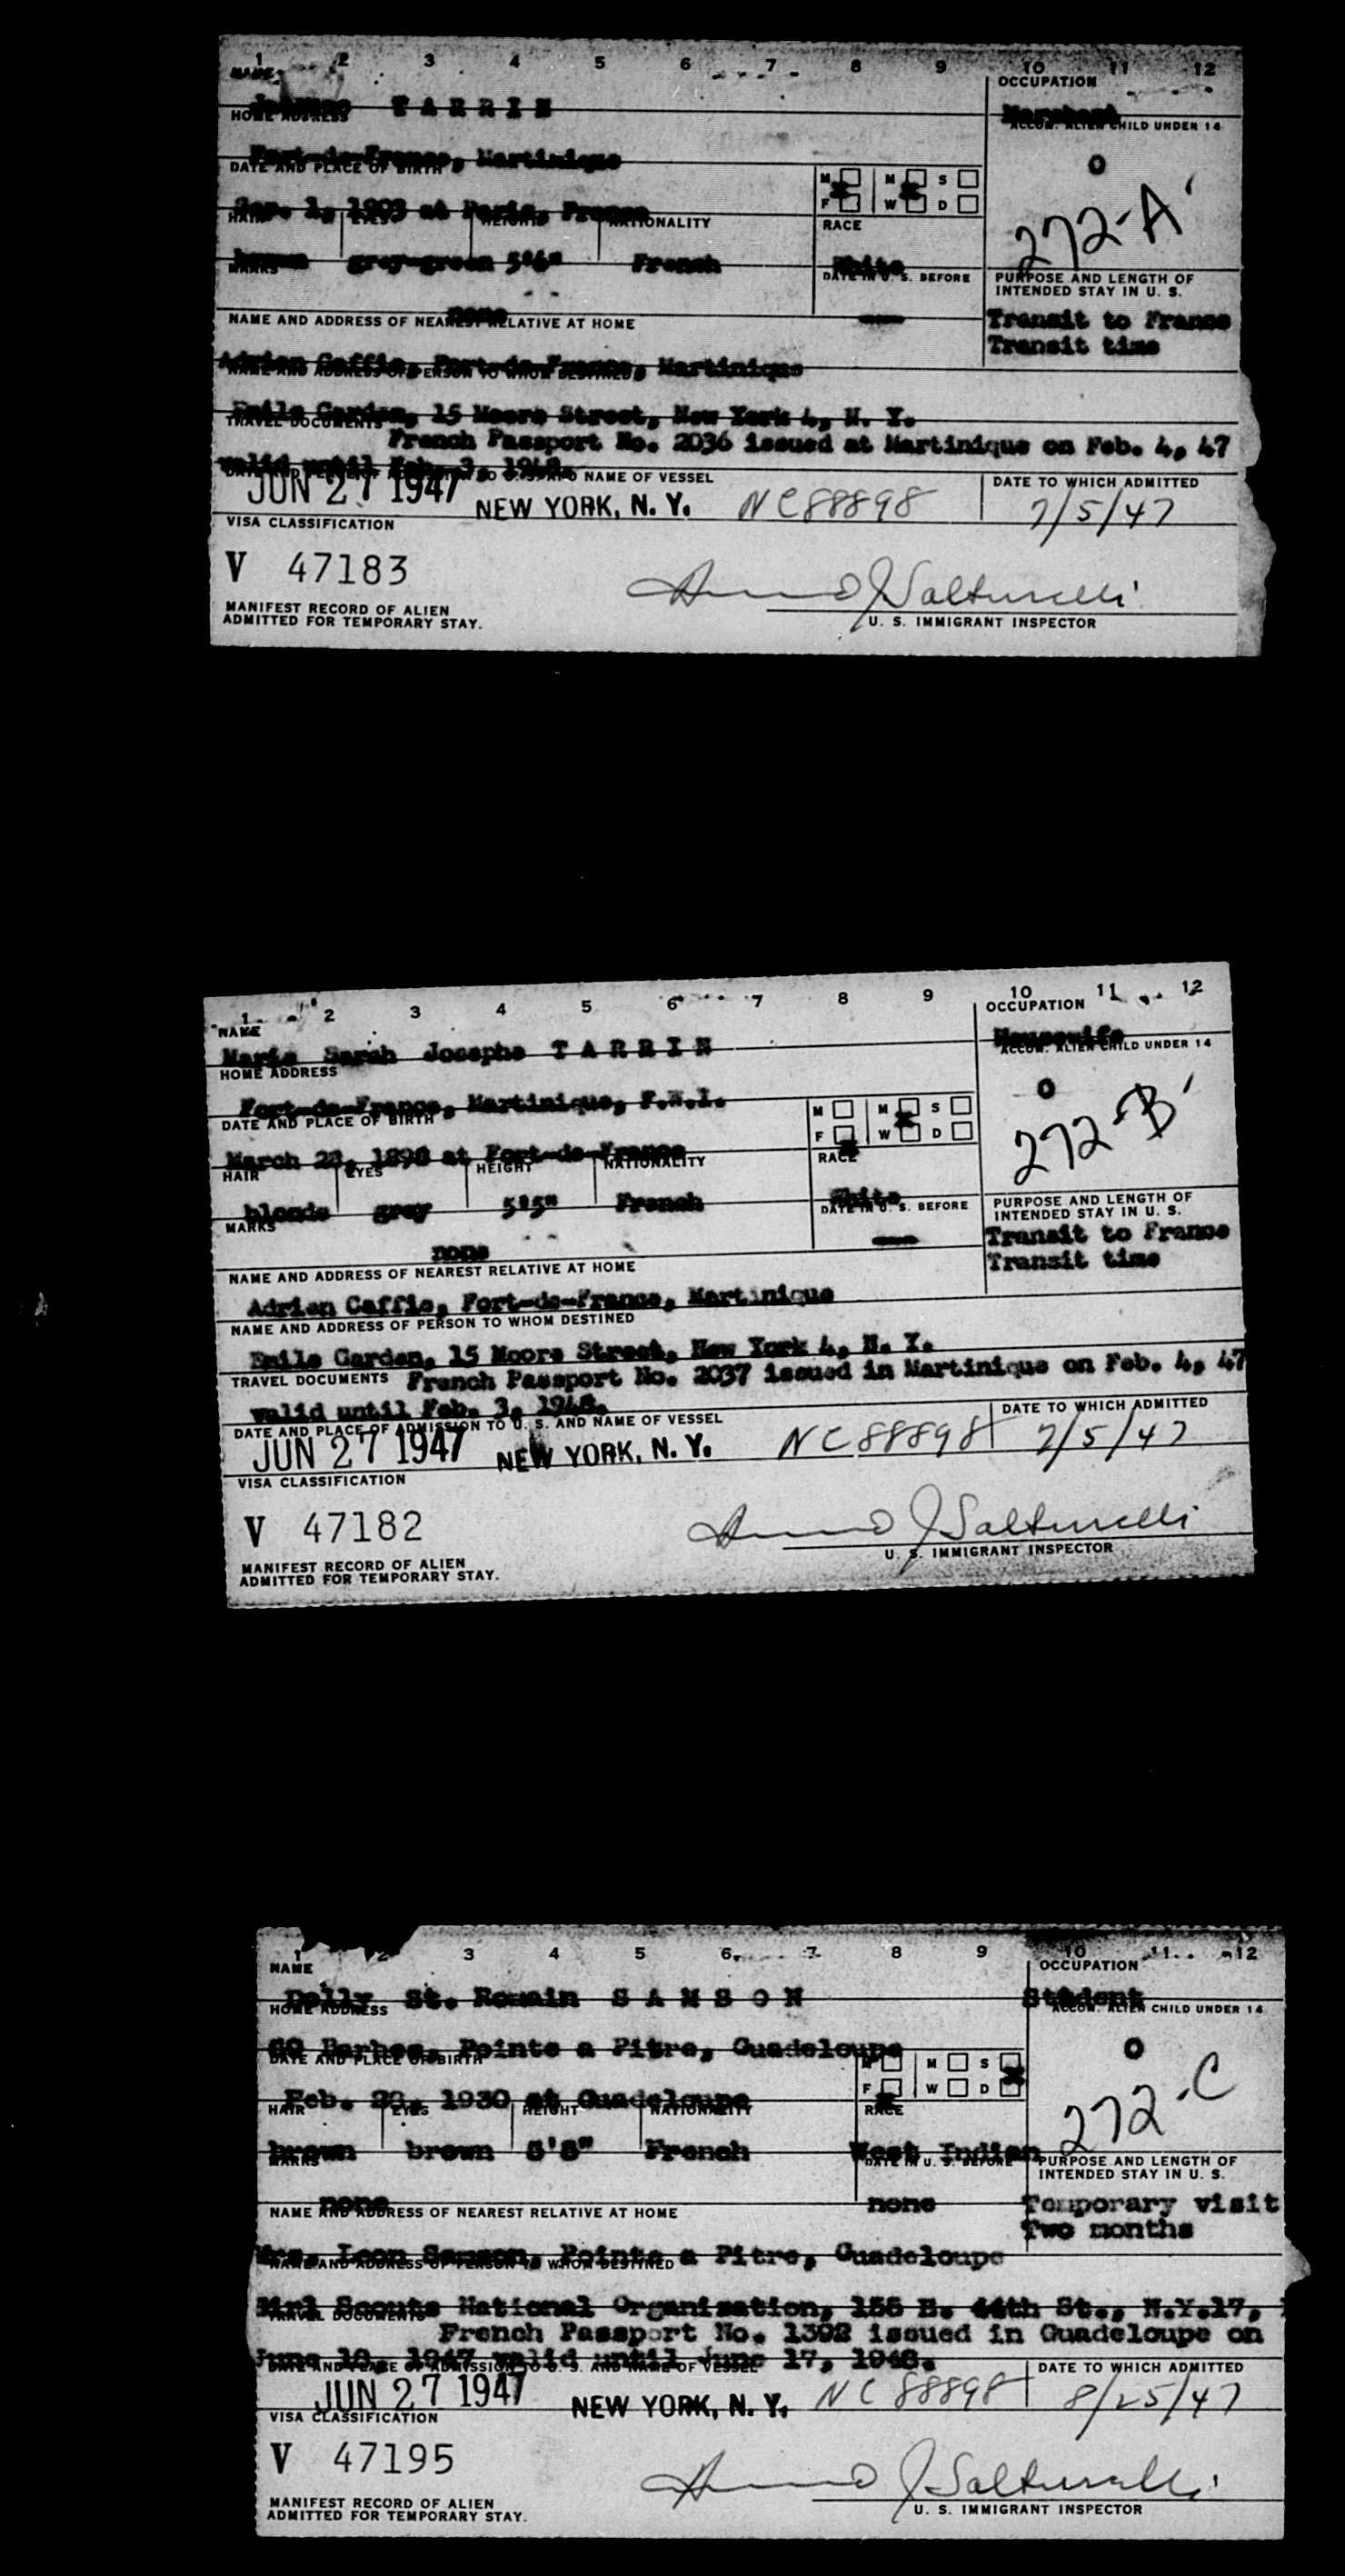 1 2 3 4 5 6 7 8 9 10 11 12
NAME OCCUPATION
TARRIN Merchant
HOME ADDRESS ACCOM. ALIEN CHILD UNDER 14
Fort-de-France, Martinique 0
DATE AND PLACE OF BIRTH M M S
1, 1903 at Paris, France F W D
HAIR EYES HEIGHT NATIONALITY RACE 272-A
brown grey-green 5'6" French White
MARKS DATE IN U. S. BEFORE PURPOSE AND LENGTH OF
INTENDED STAY IN U. S.
none — Transit to France
NAME AND ADDRESS OF NEAREST RELATIVE AT HOME Transit time
Adrien Caffie, Fort-de-France, Martinique
NAME AND ADDRESS OF PERSON TO WHOM DESTINED
Emile Garden, 15 Moore Street, New York 4, N. Y.
TRAVEL DOCUMENTS
French Passport No. 2036 issued at Martinique on Feb. 4, 47
valid until Feb. 3, 1948.
DATE AND PLACE OF ADMISSION TO U. S. AND NAME OF VESSEL DATE TO WHICH ADMITTED
JUN 27 1947 NEW YORK, N. Y. NC88898 7/5/47
VISA CLASSIFICATION
V 47183
MANIFEST RECORD OF ALIEN
ADMITTED FOR TEMPORARY STAY. U. S. IMMIGRANT INSPECTOR
1 2 3 4 5 6 7 8 9 10 11 12
NAME OCCUPATION
Marie Sarah Josephe TARRIN Housewife
HOME ADDRESS ACCOM. ALIEN CHILD UNDER 14
Fort-de-France, Martinique, F.W.I. 0
DATE AND PLACE OF BIRTH M M S
March 23, 1898 at Fort-de-France F W D
HAIR EYES HEIGHT NATIONALITY RACE 272-B
blonde grey 5'5" French White
MARKS DATE IN U. S. BEFORE PURPOSE AND LENGTH OF
INTENDED STAY IN U. S.
none — Transit to France
NAME AND ADDRESS OF NEAREST RELATIVE AT HOME Transit time
Adrien Caffie, Fort-de-France, Martinique
NAME AND ADDRESS OF PERSON TO WHOM DESTINED
Emile Garden, 15 Moore Street, New York 4, N. Y.
TRAVEL DOCUMENTS French Passport No. 2037 issued in Martinique on Feb. 4, 47
valid until Feb. 3, 1948.
DATE AND PLACE OF ADMISSION TO U. S. AND NAME OF VESSEL DATE TO WHICH ADMITTED
JUN 27 1947 NEW YORK, N. Y. NC88898 7/5/47
VISA CLASSIFICATION
V 47182
MANIFEST RECORD OF ALIEN
ADMITTED FOR TEMPORARY STAY. U. S. IMMIGRANT INSPECTOR
1 2 3 4 5 6 7 8 9 10 11 12
NAME OCCUPATION
Dolly St. Romain SAMSON Student
HOME ADDRESS ACCOM. ALIEN CHILD UNDER 14
60 Barbes, Pointe a Pitre, Guadeloupe 0
DATE AND PLACE OF BIRTH M M S
Feb. 1930 at Guadeloupe F W D
HAIR EYES HEIGHT NATIONALITY RACE 272-C
brown brown 5'8" French West Indian
MARKS DATE IN U. S. BEFORE PURPOSE AND LENGTH OF
INTENDED STAY IN U. S.
none none Temporary visit
NAME AND ADDRESS OF NEAREST RELATIVE AT HOME Two months
Mrs. Leon Samson, Pointe a Pitre, Guadeloupe
NAME AND ADDRESS OF PERSON TO WHOM DESTINED
Girl Scouts National Organization, 155 E. 44th St., N.Y.17,
TRAVEL DOCUMENTS
French Passport No. 1392 issued in Guadeloupe on
June 18, 1947 valid until June 17, 1948.
DATE AND PLACE OF ADMISSION TO U. S. AND NAME OF VESSEL DATE TO WHICH ADMITTED
JUN 27 1947 NEW YORK, N. Y. NC 88898 8/25/47
VISA CLASSIFICATION
V 47195
MANIFEST RECORD OF ALIEN
ADMITTED FOR TEMPORARY STAY. U. S. IMMIGRANT INSPECTOR